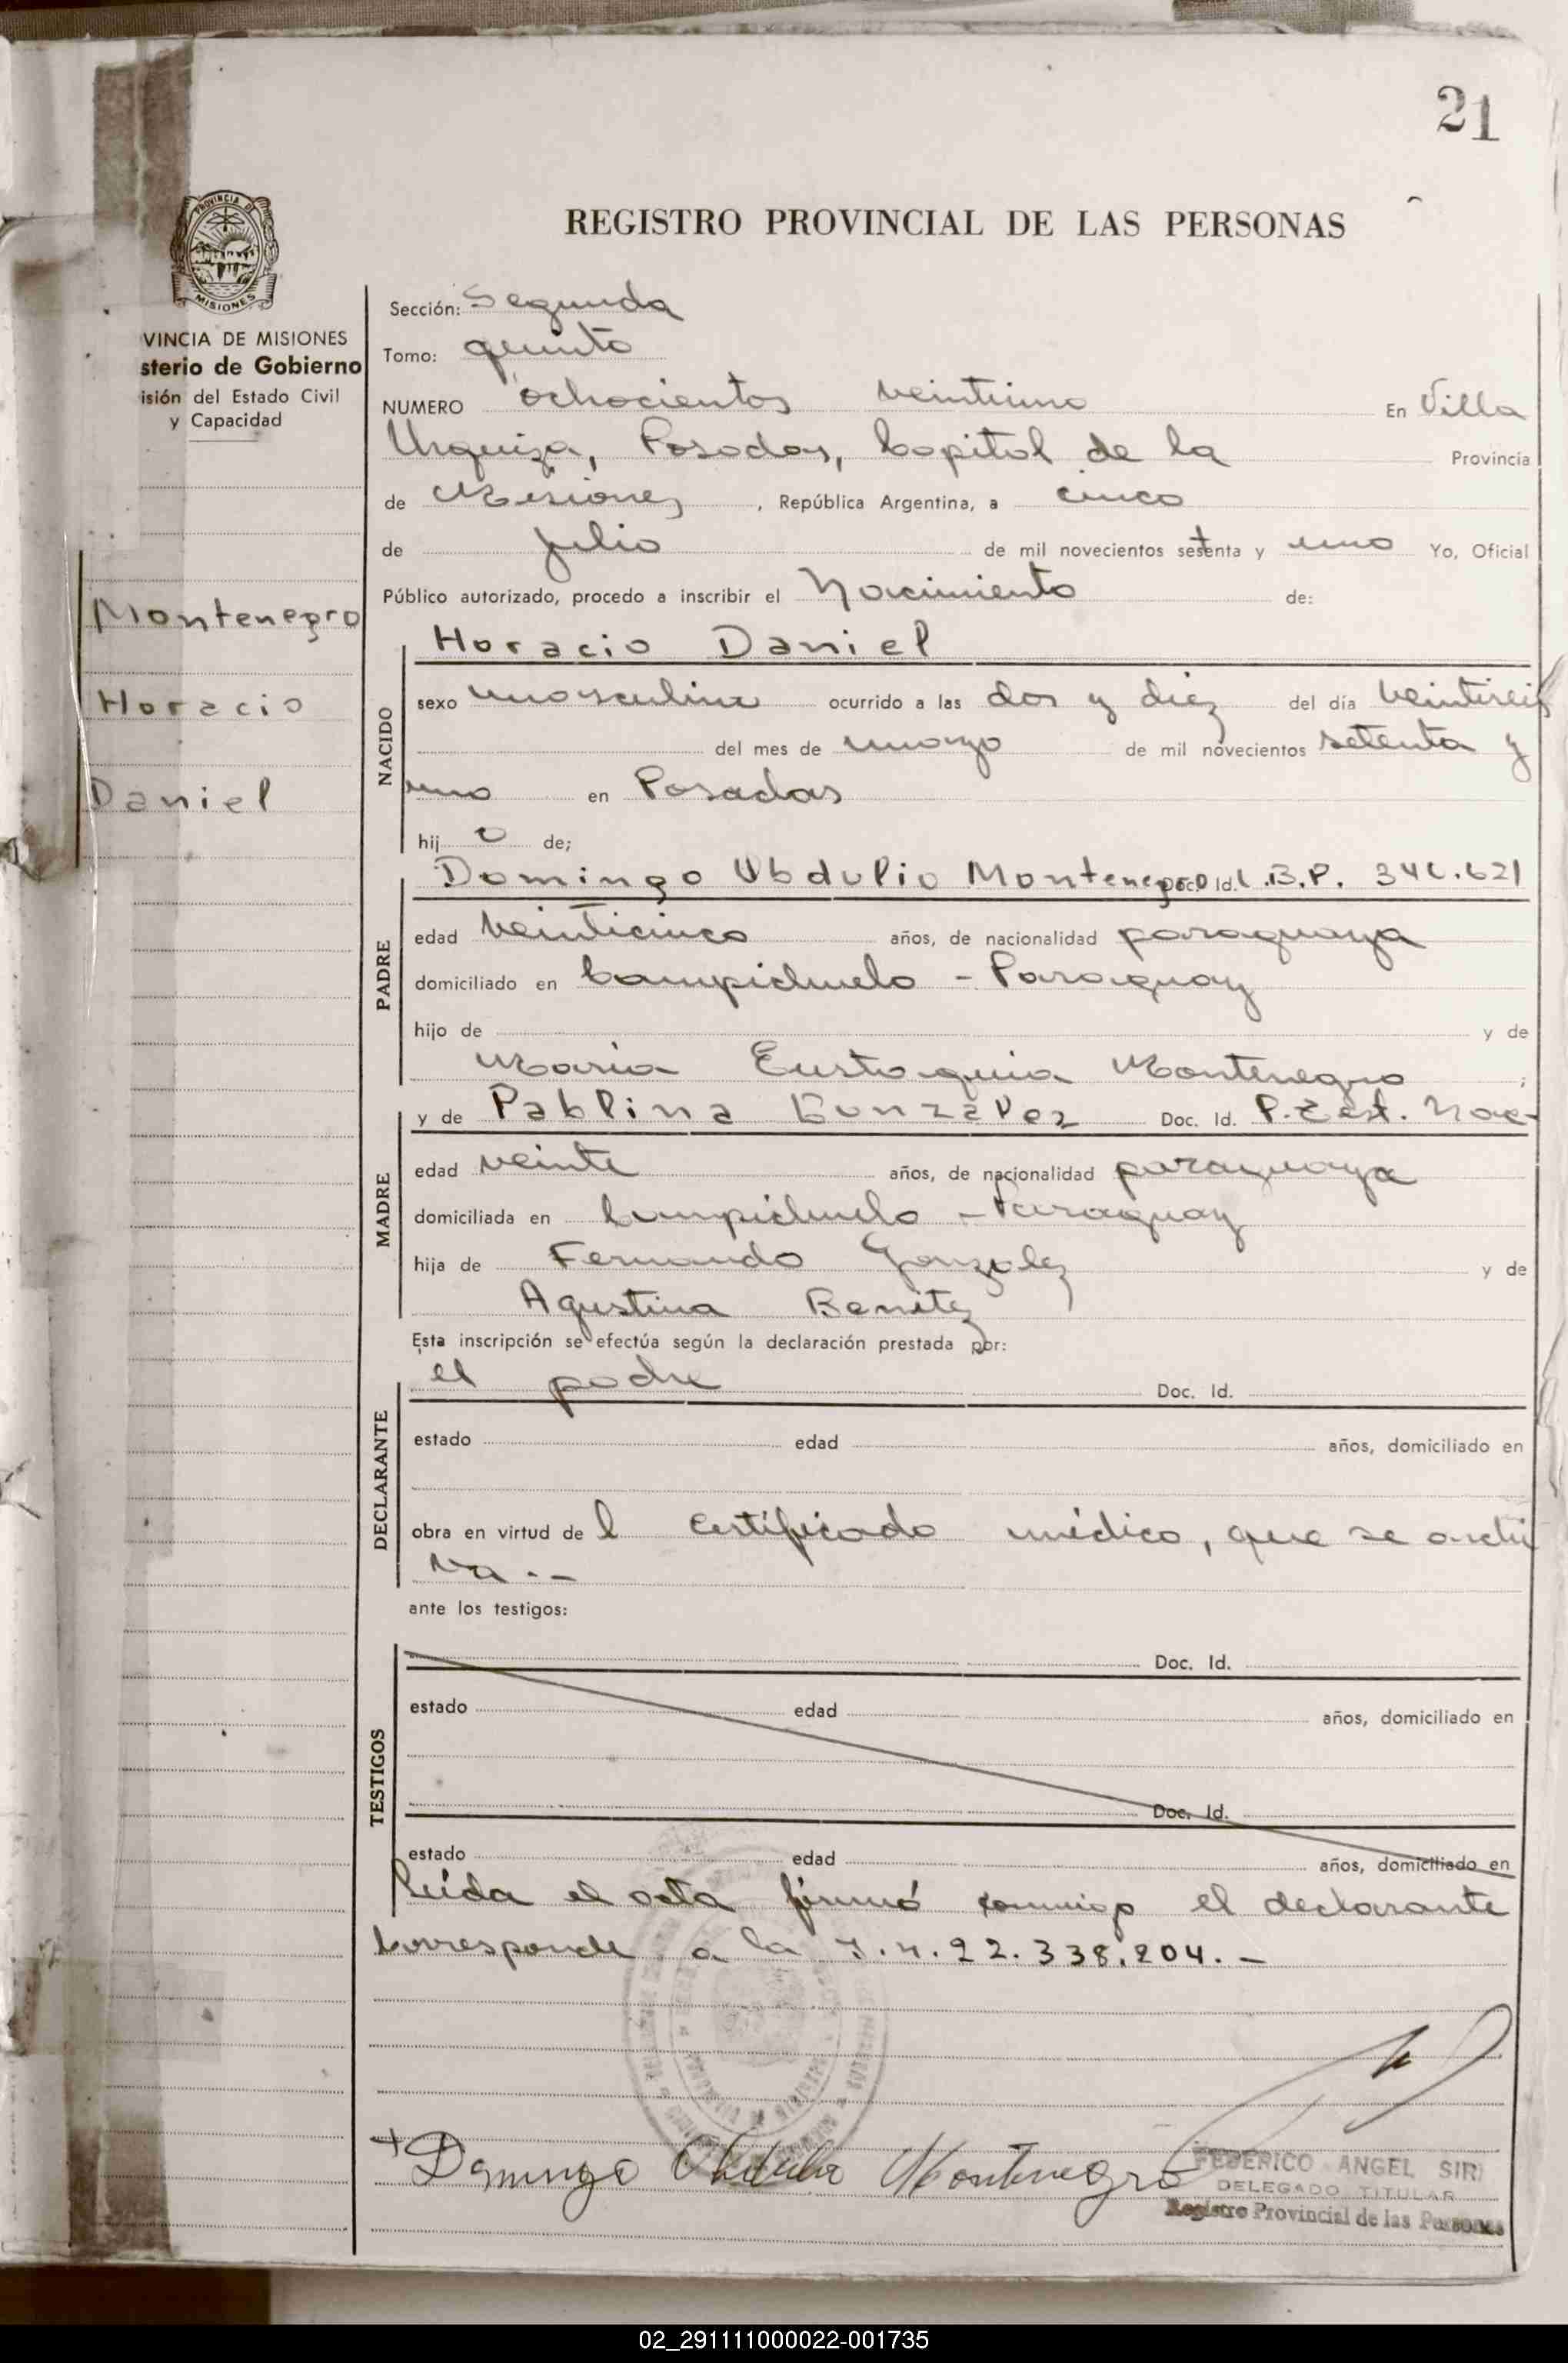 21
REGISTRO PROVINCIAL DE LAS PERSONAS
PROVINCIA DE
MISIONES
VINCIA DE MISIONES
sterio de Gobierno
isión del Estado Civil
y Capacidad
Montenegro
Horacio
Daniel
Sección: Segunda
Tomo: quinto
NUMERO ochocientos veintiuno En Villa
Urquiza, Posadas, Capital de la Provincia
de Misiones, República Argentina, a cinco
de julio de mil novecientos setenta y uno Yo, Oficial
Público autorizado, procedo a inscribir el Nacimiento de:
NACIDO
Horacio Daniel
sexo masculino ocurrido a las dos y diez del día veintiseis
del mes de marzo de mil novecientos setenta y
uno en Posadas
hijo de;
PADRE
Domingo Obdulio Montenegro Doc. Id. B.P. 346.621
edad veinticinco años, de nacionalidad paraguaya
domiciliado en Campichuelo - Paraguay
hijo de y de
María Eustaquia Montenegro ;
MADRE
y de Pablina Gonzalez Doc. Id. P. Cert. Nac-
edad veinte años, de nacionalidad paraguaya
domiciliada en Campichuelo - Paraguay
hija de Fernando Gonzalez y de
Agustina Benitez
Esta inscripción se efectúa según la declaración prestada por:
DECLARANTE
el padre Doc. Id.
estado edad años, domiciliado en
obra en virtud del certificado médico, que se archi
va.-
ante los testigos:
TESTIGOS
Doc. Id.
estado edad años, domiciliado en
Doc. Id.
estado edad años, domiciliado en
Leída el acta firmó conmigo el declarante
Corresponde a la 22.338.204.-
Domingo Obdulio Montenegro
FEDERICO ANGEL SIRI
DELEGADO TITULAR
Registro Provincial de las Personas
02_291111000022-001735